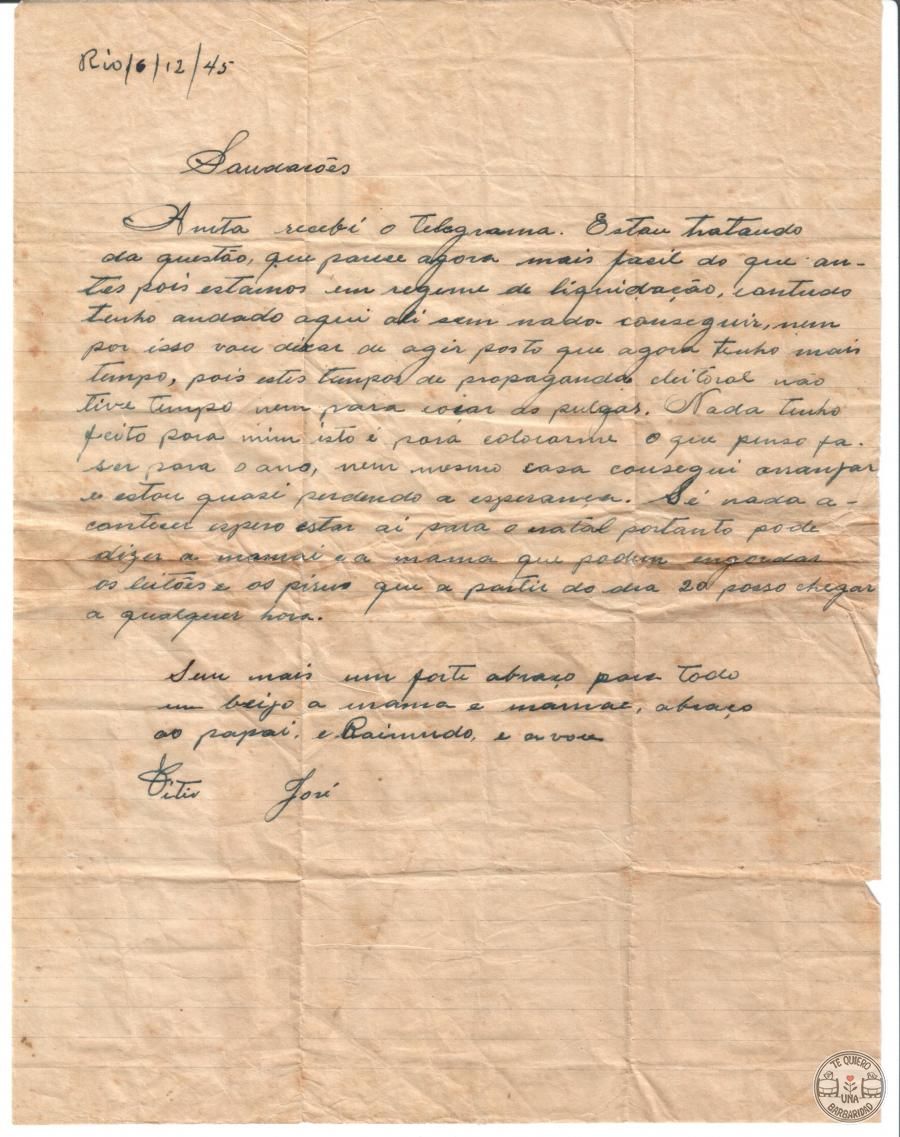 Rio/6/12/45
Saudacões
Anita recebí o telegrama. Estou tratando
da questão, que parece agora mais facil do que an-
tes pois estamos em regime de liquidação, contudo
tenho andado aqui ali sem nada conseguir, nem
por isso vou deixar de agir posto que agora tenho mais
tempo, pois estes tempos de propaganda eleitoral não
tive tempo nem para coçar as pulgas. Nada tenho
feito para mim isto é pará colocarme o que penso fa-
ser para o ano, nem mesmo casa consegui arranjar
e estou quasi perdendo a esperança. Sé nada a-
contecer espero estar aí para o natál portanto pode
dizer a mamãi e a mama que podem engordar
os leitões e os pirus que a partir do dia 20 posso chegar
a qualquer hora.
Sem mais um forte abraço para todo
um beijo a mama e mamãe, abraço
ao papai, e Raimundo, e a vou
José
TE QUIERO
UNA
BARBARIDAD